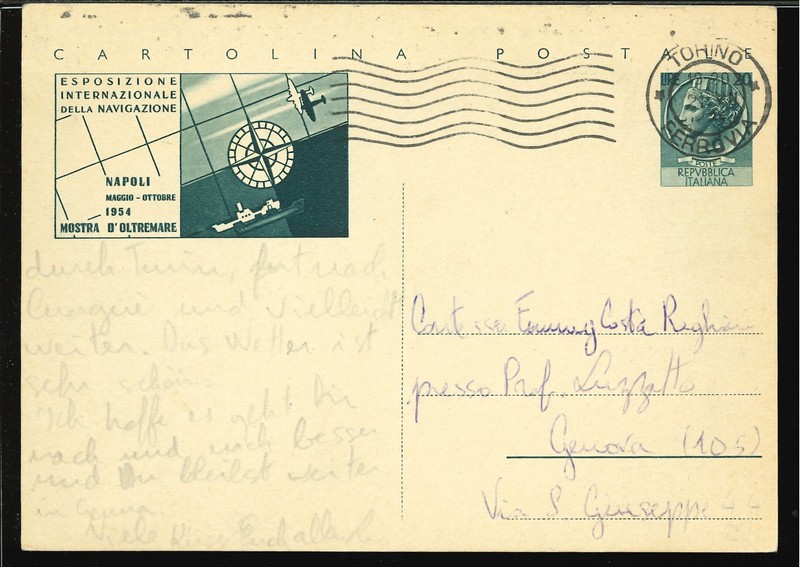 CARTOLINA POSTALE
ESPOSIZIONE
INTERNAZIONALE
DELLA NAVIGAZIONE
NAPOLI
MAGGIO - OTTOBRE
1954
MOSTRA D'OLTREMARE
TORINO
FERROVIA
LIRE 20
POSTE
REPVBBLICA
ITALIANA
durch Turin, fort nach
und vielleicht
weiter. Das Wetter ist
sehr schön.
Ich hoffe es geht Dir
nach und nach besser
und Du bleibst weiter
in Genua.
Viele
Contessa Fanny Costa
presso Prof. Luzzatto
Genova (105)
Via S. Giuseppe 44